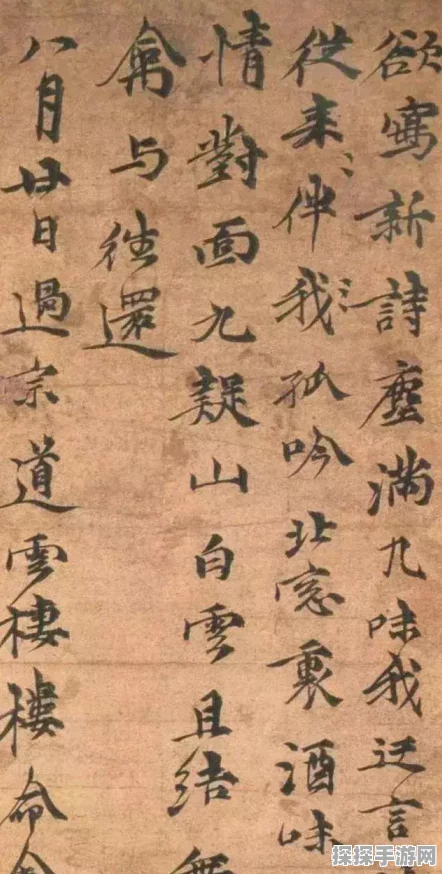 欲寫新詩塵滿几味我迂言
從来伴我孤吟北窓裏酒味
情對面九疑山白雲且结無
禽与往還
八月廿日過宗道雲棲樓命
探探手游网